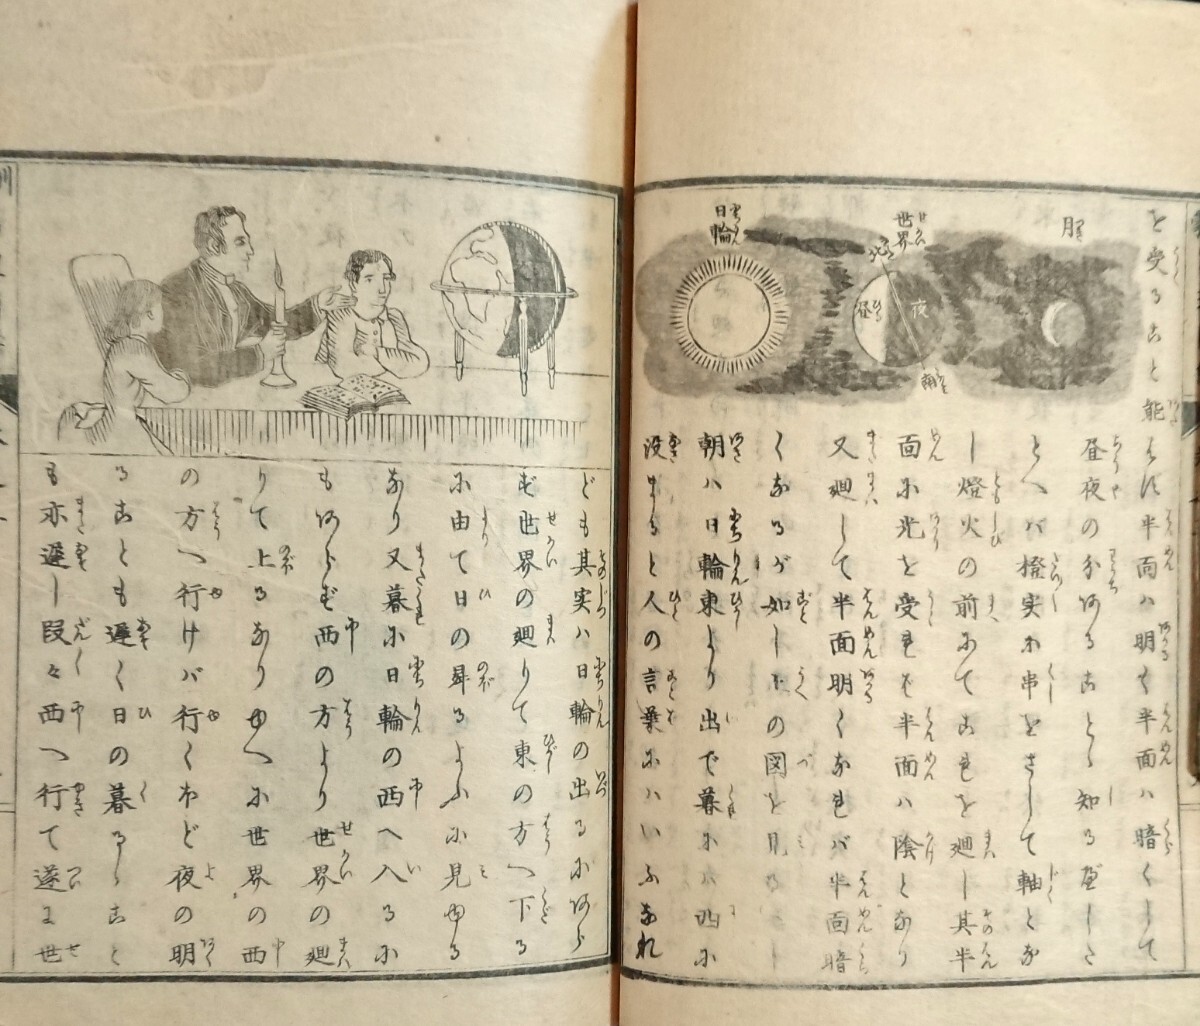 を受ること能はず半面ハ明く半面ハ暗くして
月
世界
北
夜
昼
南
日輪
昼夜の分あることゝ知る可した
とへバ橙実に串をさして軸とな
し燈火の前にてこれを廻し其半
面に光を受れど半面ハ陰となり
又廻して半面明くなれバ半面暗
くなるが如し下の図を見るべし
朝ハ日輪東より出で暮にハ西に
没すると人の言葉にハいふなれ
ども其実ハ日輪の出るにあら
ず世界の廻りて東の方へ下る
に由て日の昇るよふに見ゆる
なり又暮に日輪の西へ入るに
もあらず西の方より世界の廻
りて上るなりゆへに世界の西
の方へ行けバ行くほど夜の明
ることも遅く日の暮るゝこと
も亦遅し段々西へ行て遂に世